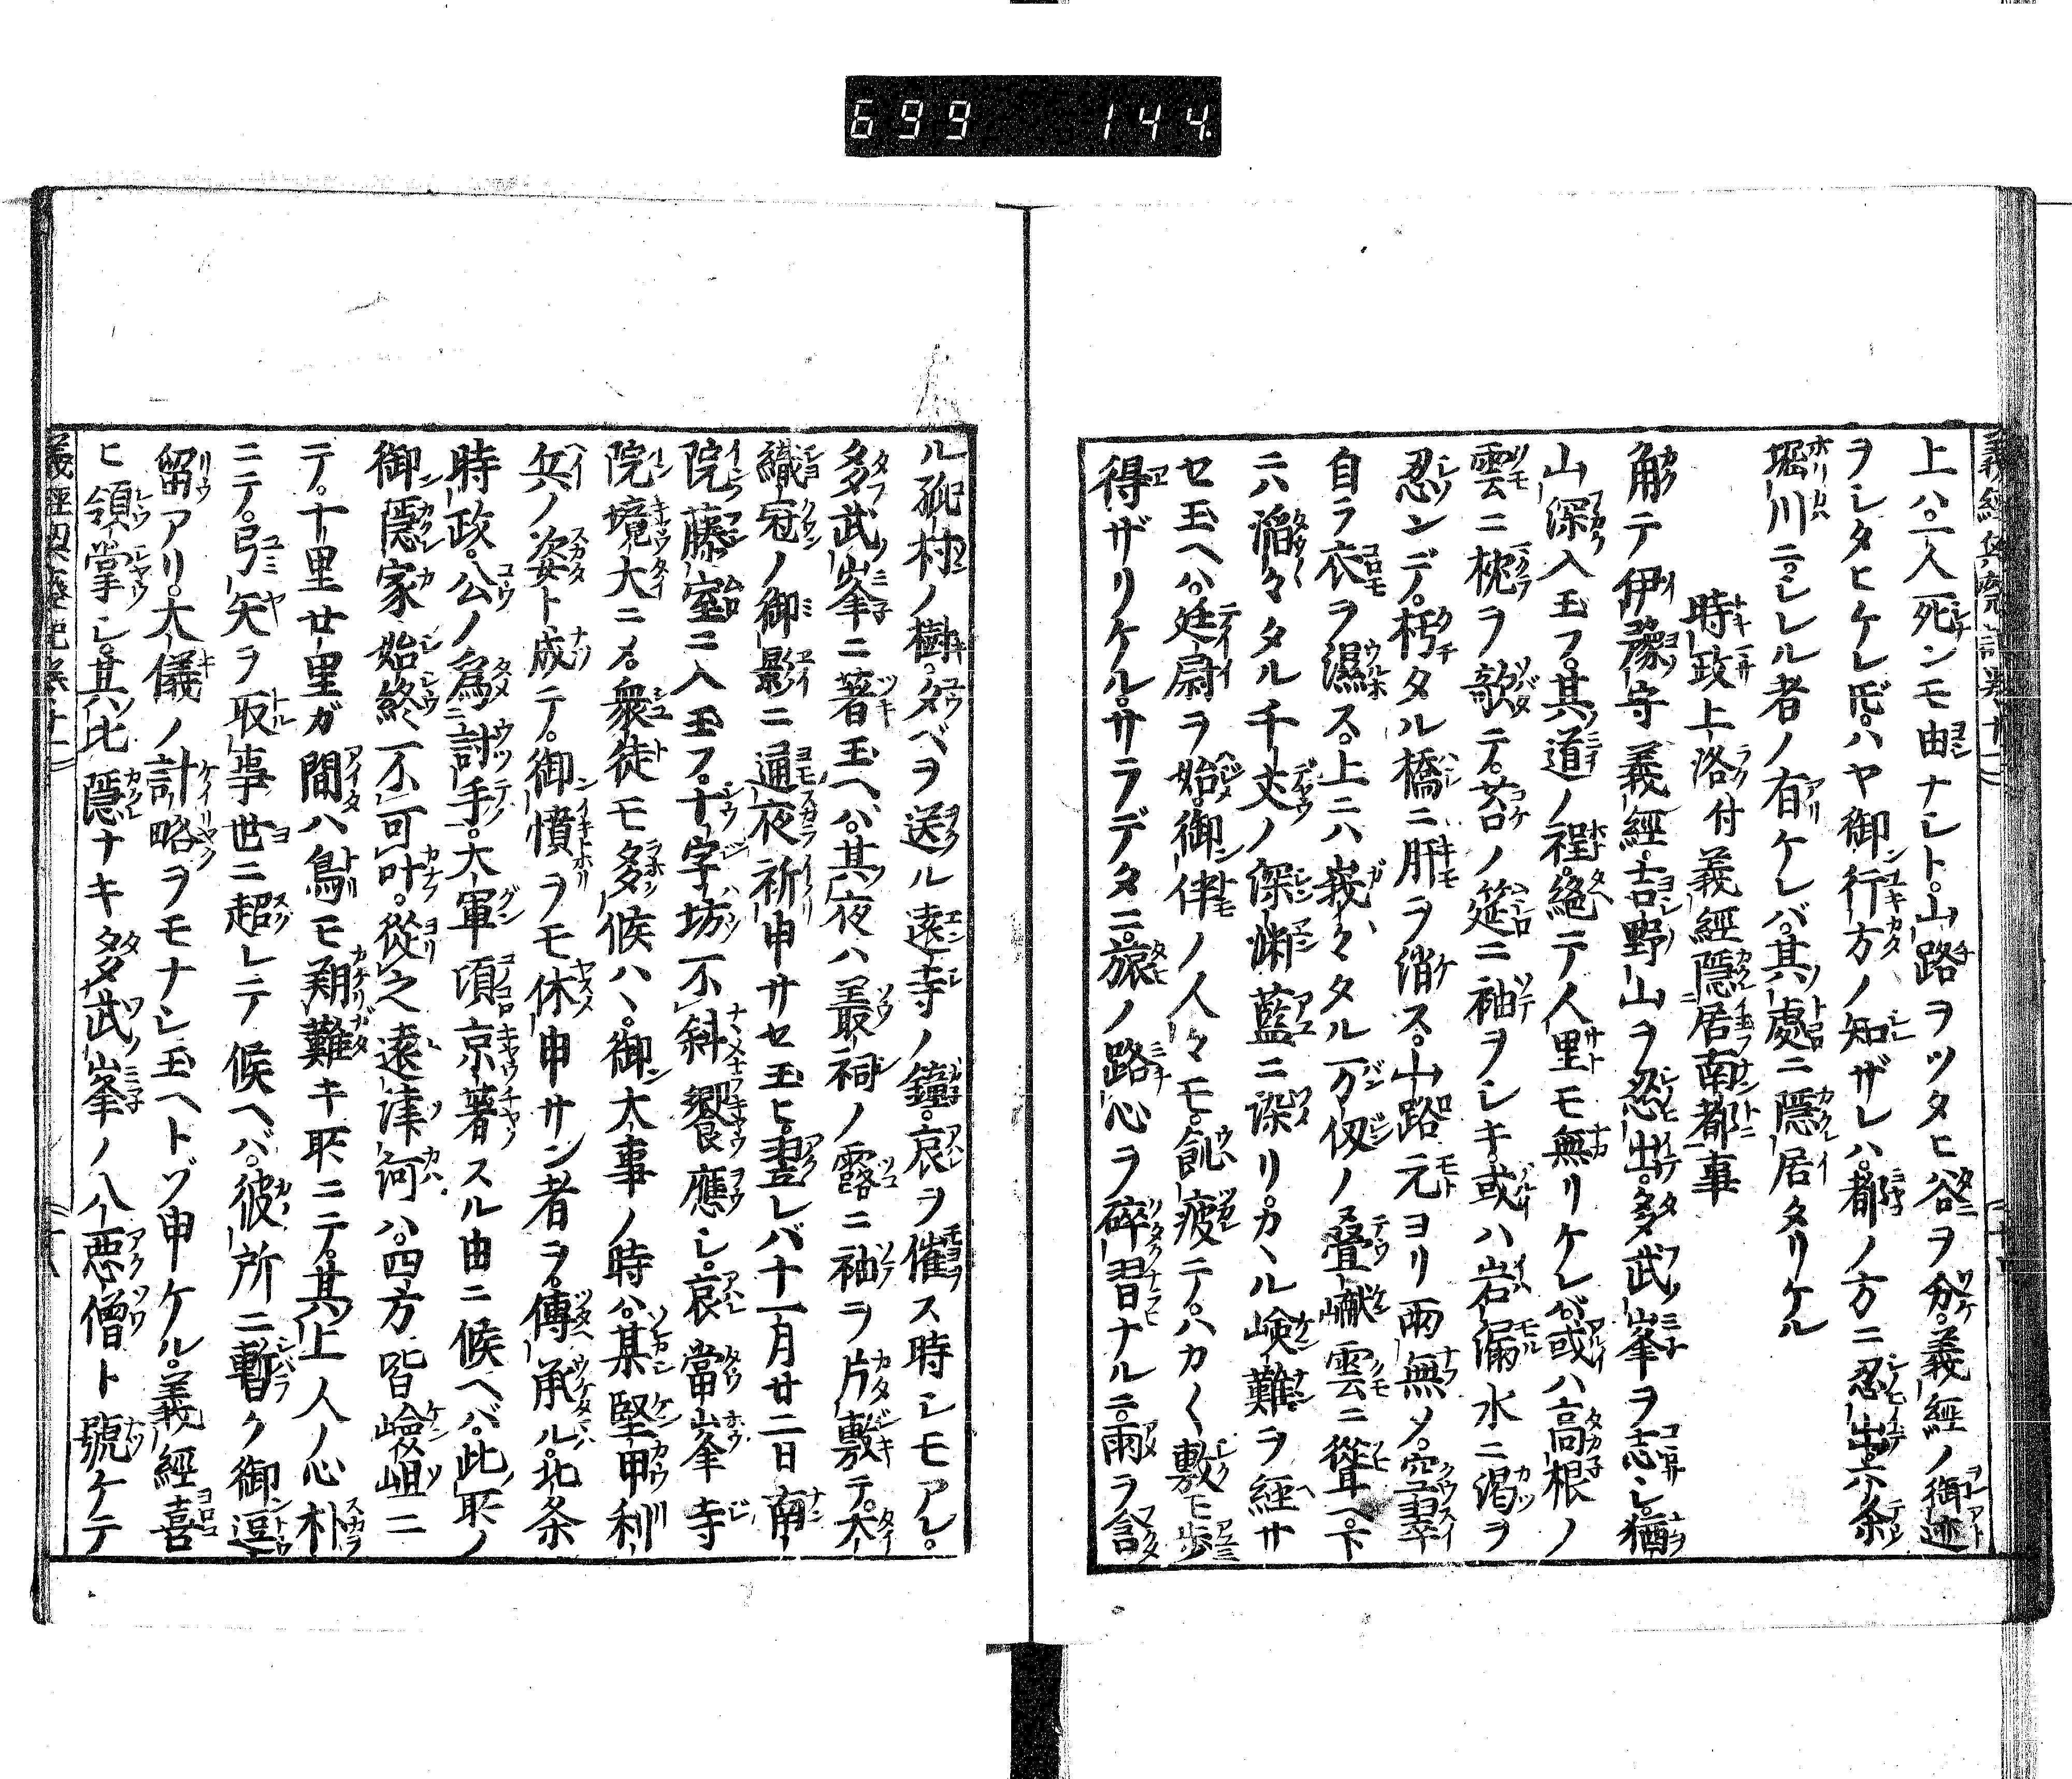 699 144
上ハ。一人死ンモ由ナシト。山路ヲツタヒ谷ヲ分。義經ノ御迹
ヲシタヒケレ𪜈。ハヤ御行方ノ知ザレハ。都ノ方ニ忍出。六条
堀川ニ。シレル者ノ有ケレバ。其處ニ隱居タリケル
時政上洛付義經隱居南都事
角テ伊豫守義經。吉野山ヲ忍出。多武峯ヲ志シ。猶
山深入玉フ。其道ノ程。絶テ人里モ無リケレバ。或ハ高根ノ
雲ニ枕ヲ欹テ。苔ノ筵ニ袖ヲシキ。或ハ岩漏水ニ渇ヲ
忍ンデ。朽タル橋ニ肝ヲ消ス。山路元ヨリ雨無〆。空翠
自ラ衣ヲ濕ス。上ニハ峩々タル万仭ノ疊巘雲ニ聳ヘ。下
ニハ滔々タル千丈ノ深淵藍ニ染リ。カヽル嶮難ヲ經サ
セ玉ヘハ。廷尉ヲ始。御伴ノ人々モ。飢疲テ。ハカ〱敷モ歩
得ザリケル。サラデタニ。旅ノ路心ヲ碎習ナルニ。雨ヲ含
ル孤村ノ樹。夕ベヲ送ル遠寺ノ鐘。哀ヲ催ス時シモアレ。
多武峯ニ著玉ヘバ。其夜ハ叢祠ノ露ニ袖ヲ片敷テ。大
織冠ノ御影ニ通夜祈申サセ玉ヒ。翌レバ十一月廿二日南
院藤室ニ入玉フ。十字坊不斜饗應シ。哀當峯寺
院境大ニ〆。衆徒モ多候ハヽ。御大事ノ時ハ。某堅甲利
兵ノ姿ト成テ。御憤ヲモ休申サン者ヲ。傳承ル。北条
時政公ノ爲討手。大軍頃京著スル由ニ候ヘバ。此所ノ
御隱家始終不可叶。從之遠津河ハ。四方皆嶮岨ニ
テ。十里廿里ガ間ハ鳥モ翔難キ所ニテ。其上人ノ心朴
ニテ。弓矢ヲ取事世ニ超レテ候ヘバ。彼所ニ暫ク御逗
留アリ。大儀ノ計略ヲモナシ玉ヘトゾ申ケル。義經喜
ヒ領掌シ。其比隱ナキ多武峯ノ八惡僧ト號ケテ